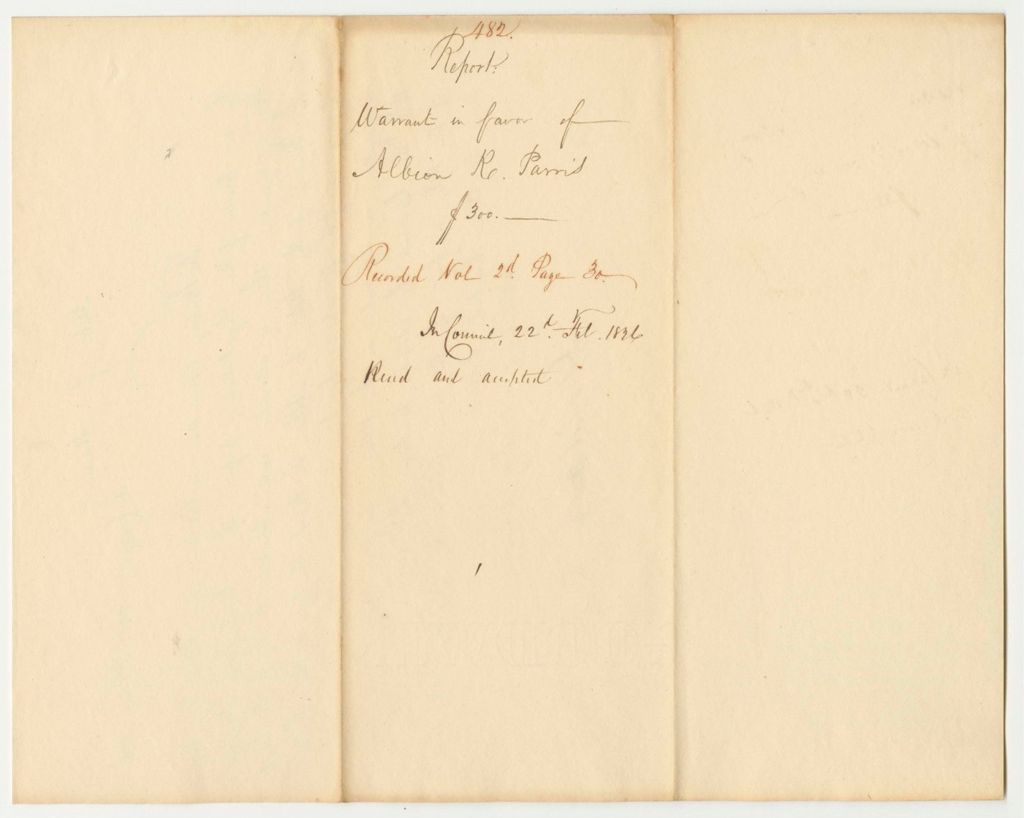 482.
Report.
Warrant in favor of
Albion K. Parris
$300.
Recorded Vol 2d. Page 30
In Council, 22d. Feb. 1826
Read and accepted